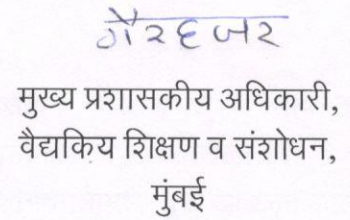 गैरहजर
मुख्य प्रशासकीय अधिकारी,
वैद्यकिय शिक्षण व संशोधन,
मुंबई